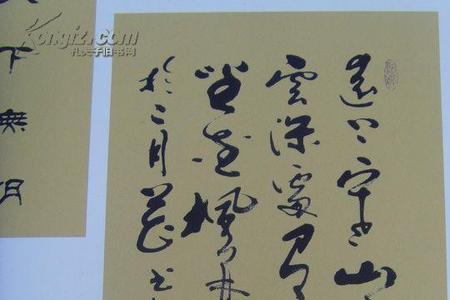 遠上寒山
雲深處有
坐愛楓林
於二月花书
下無
Kongfz.com
孔夫子旧书网